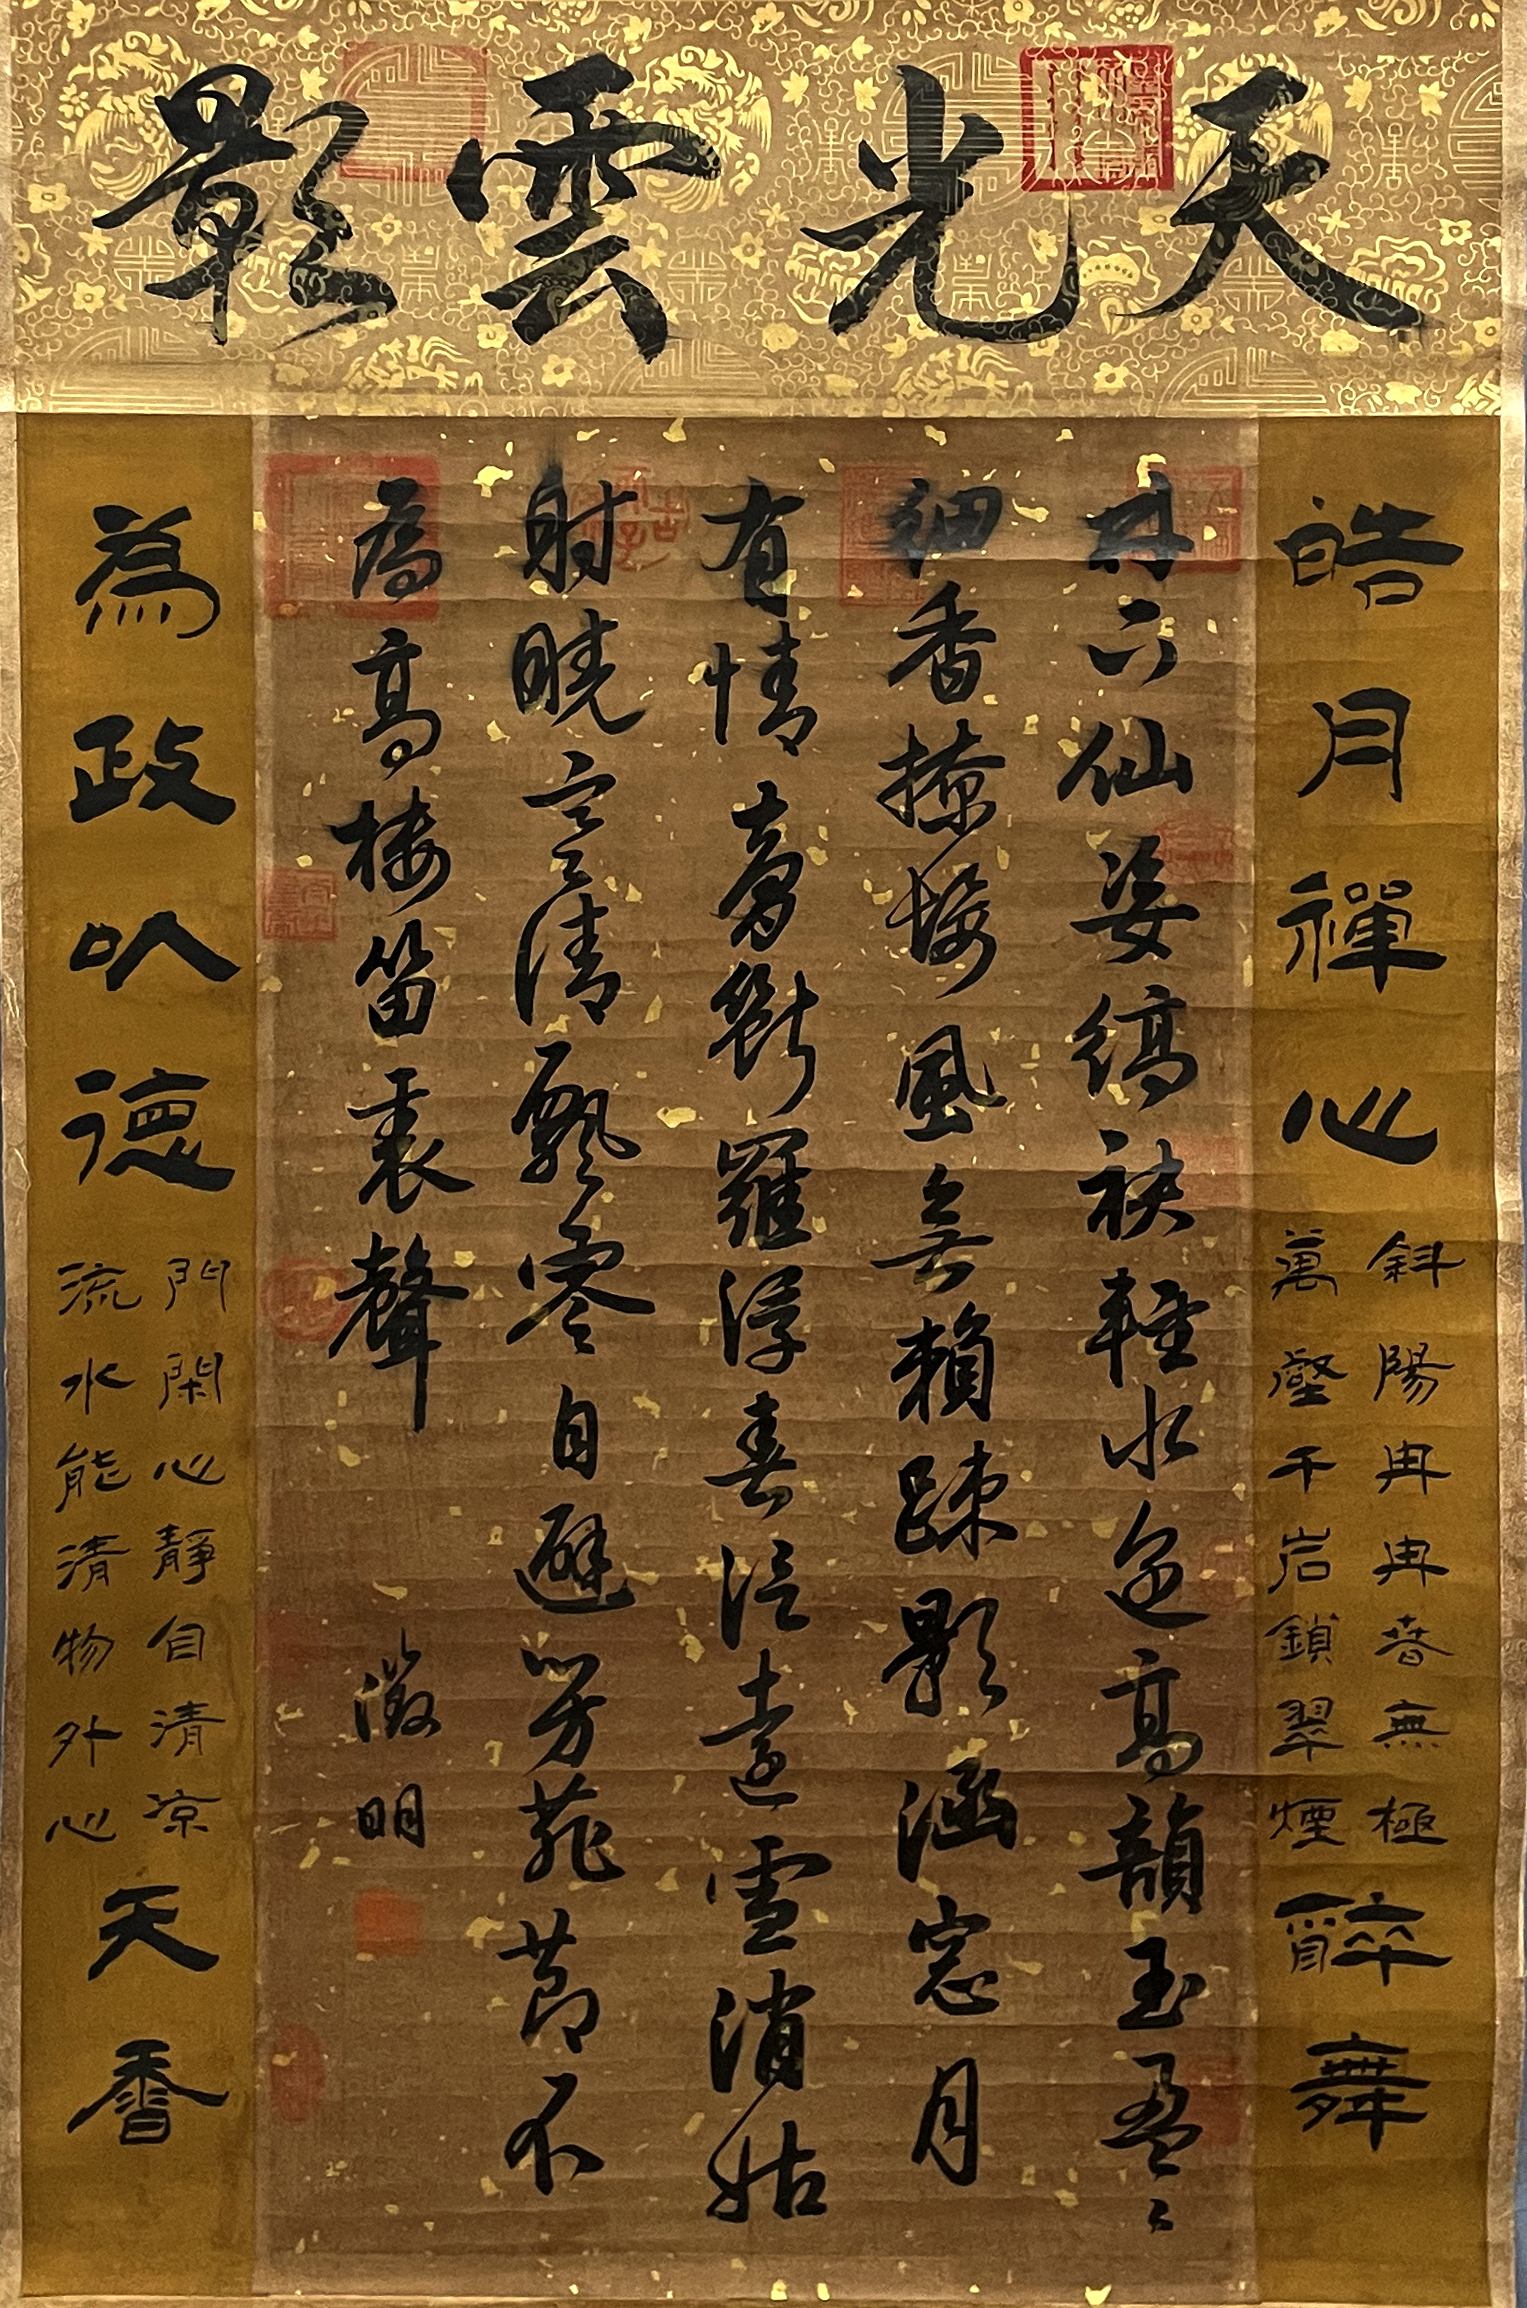 天光雲影
皓月禪心
斜陽冉冉春無極
萬壑千岩鎖翠煙
醉舞
林下仙姿縞袂輕水邊高韻玉盈〻
細香撩撥風無賴疎影涵窓月
有情夢斷羅浮春信遠雪消姑
射曉寒清飄零自避芳菲節不
為高樓笛裏聲
徵明
為政以德
門閑心靜自清涼
流水能清物外心
天香